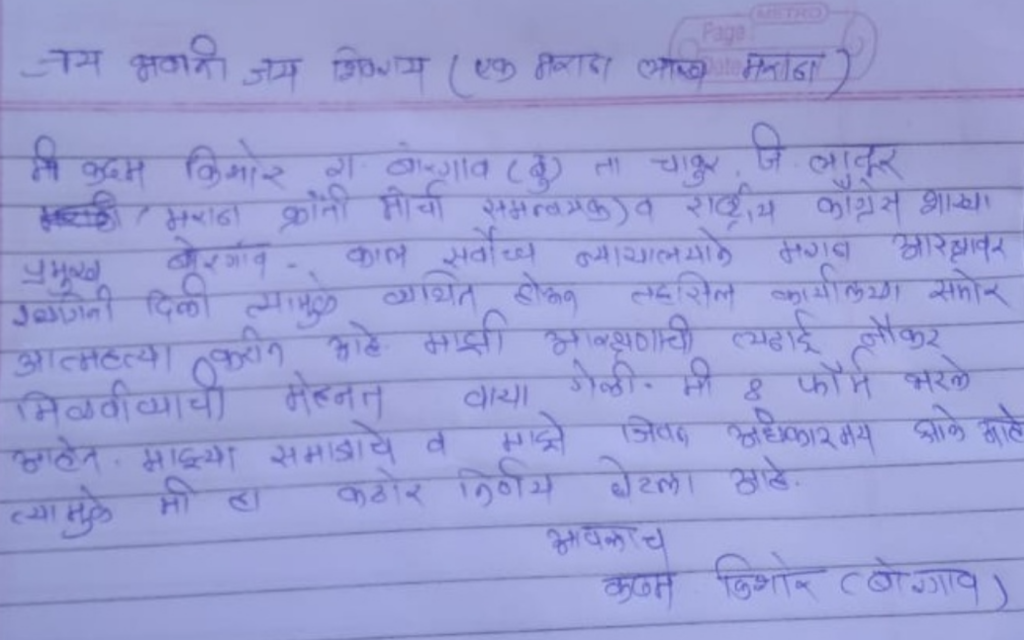 METRO
Page
Date
जय भवानी जय शिवराय (एक मराठा लाख मराठा)
मी कदम किशोर रा. बोरगाव (बु) ता चाकुर जि. लातूर
मराठा क्रांती मोर्चा समन्वयक) व राष्ट्रीय काँग्रेस शाखा
प्रमुख बोरगाव - काल सर्वोच्च न्यायालयाने मराठा आरक्षणावर
स्थगिती दिली त्यामुळे व्यथित होऊन तहसिल कार्यालया समोर
आत्महत्या करीत आहे. माझी आरक्षणाची लढाई नौकर
मिळवीण्याची मेहनत वाया गेली. मी 8 फॉर्म भरले
आहेत. माझ्या समाजाचे व माझे जिवन अंधकारमय झाले आहे
त्यामुळे मी हा कठोर निर्णय घेटला आहे.
आपलाच
कदम किशोर (बोरगाव)